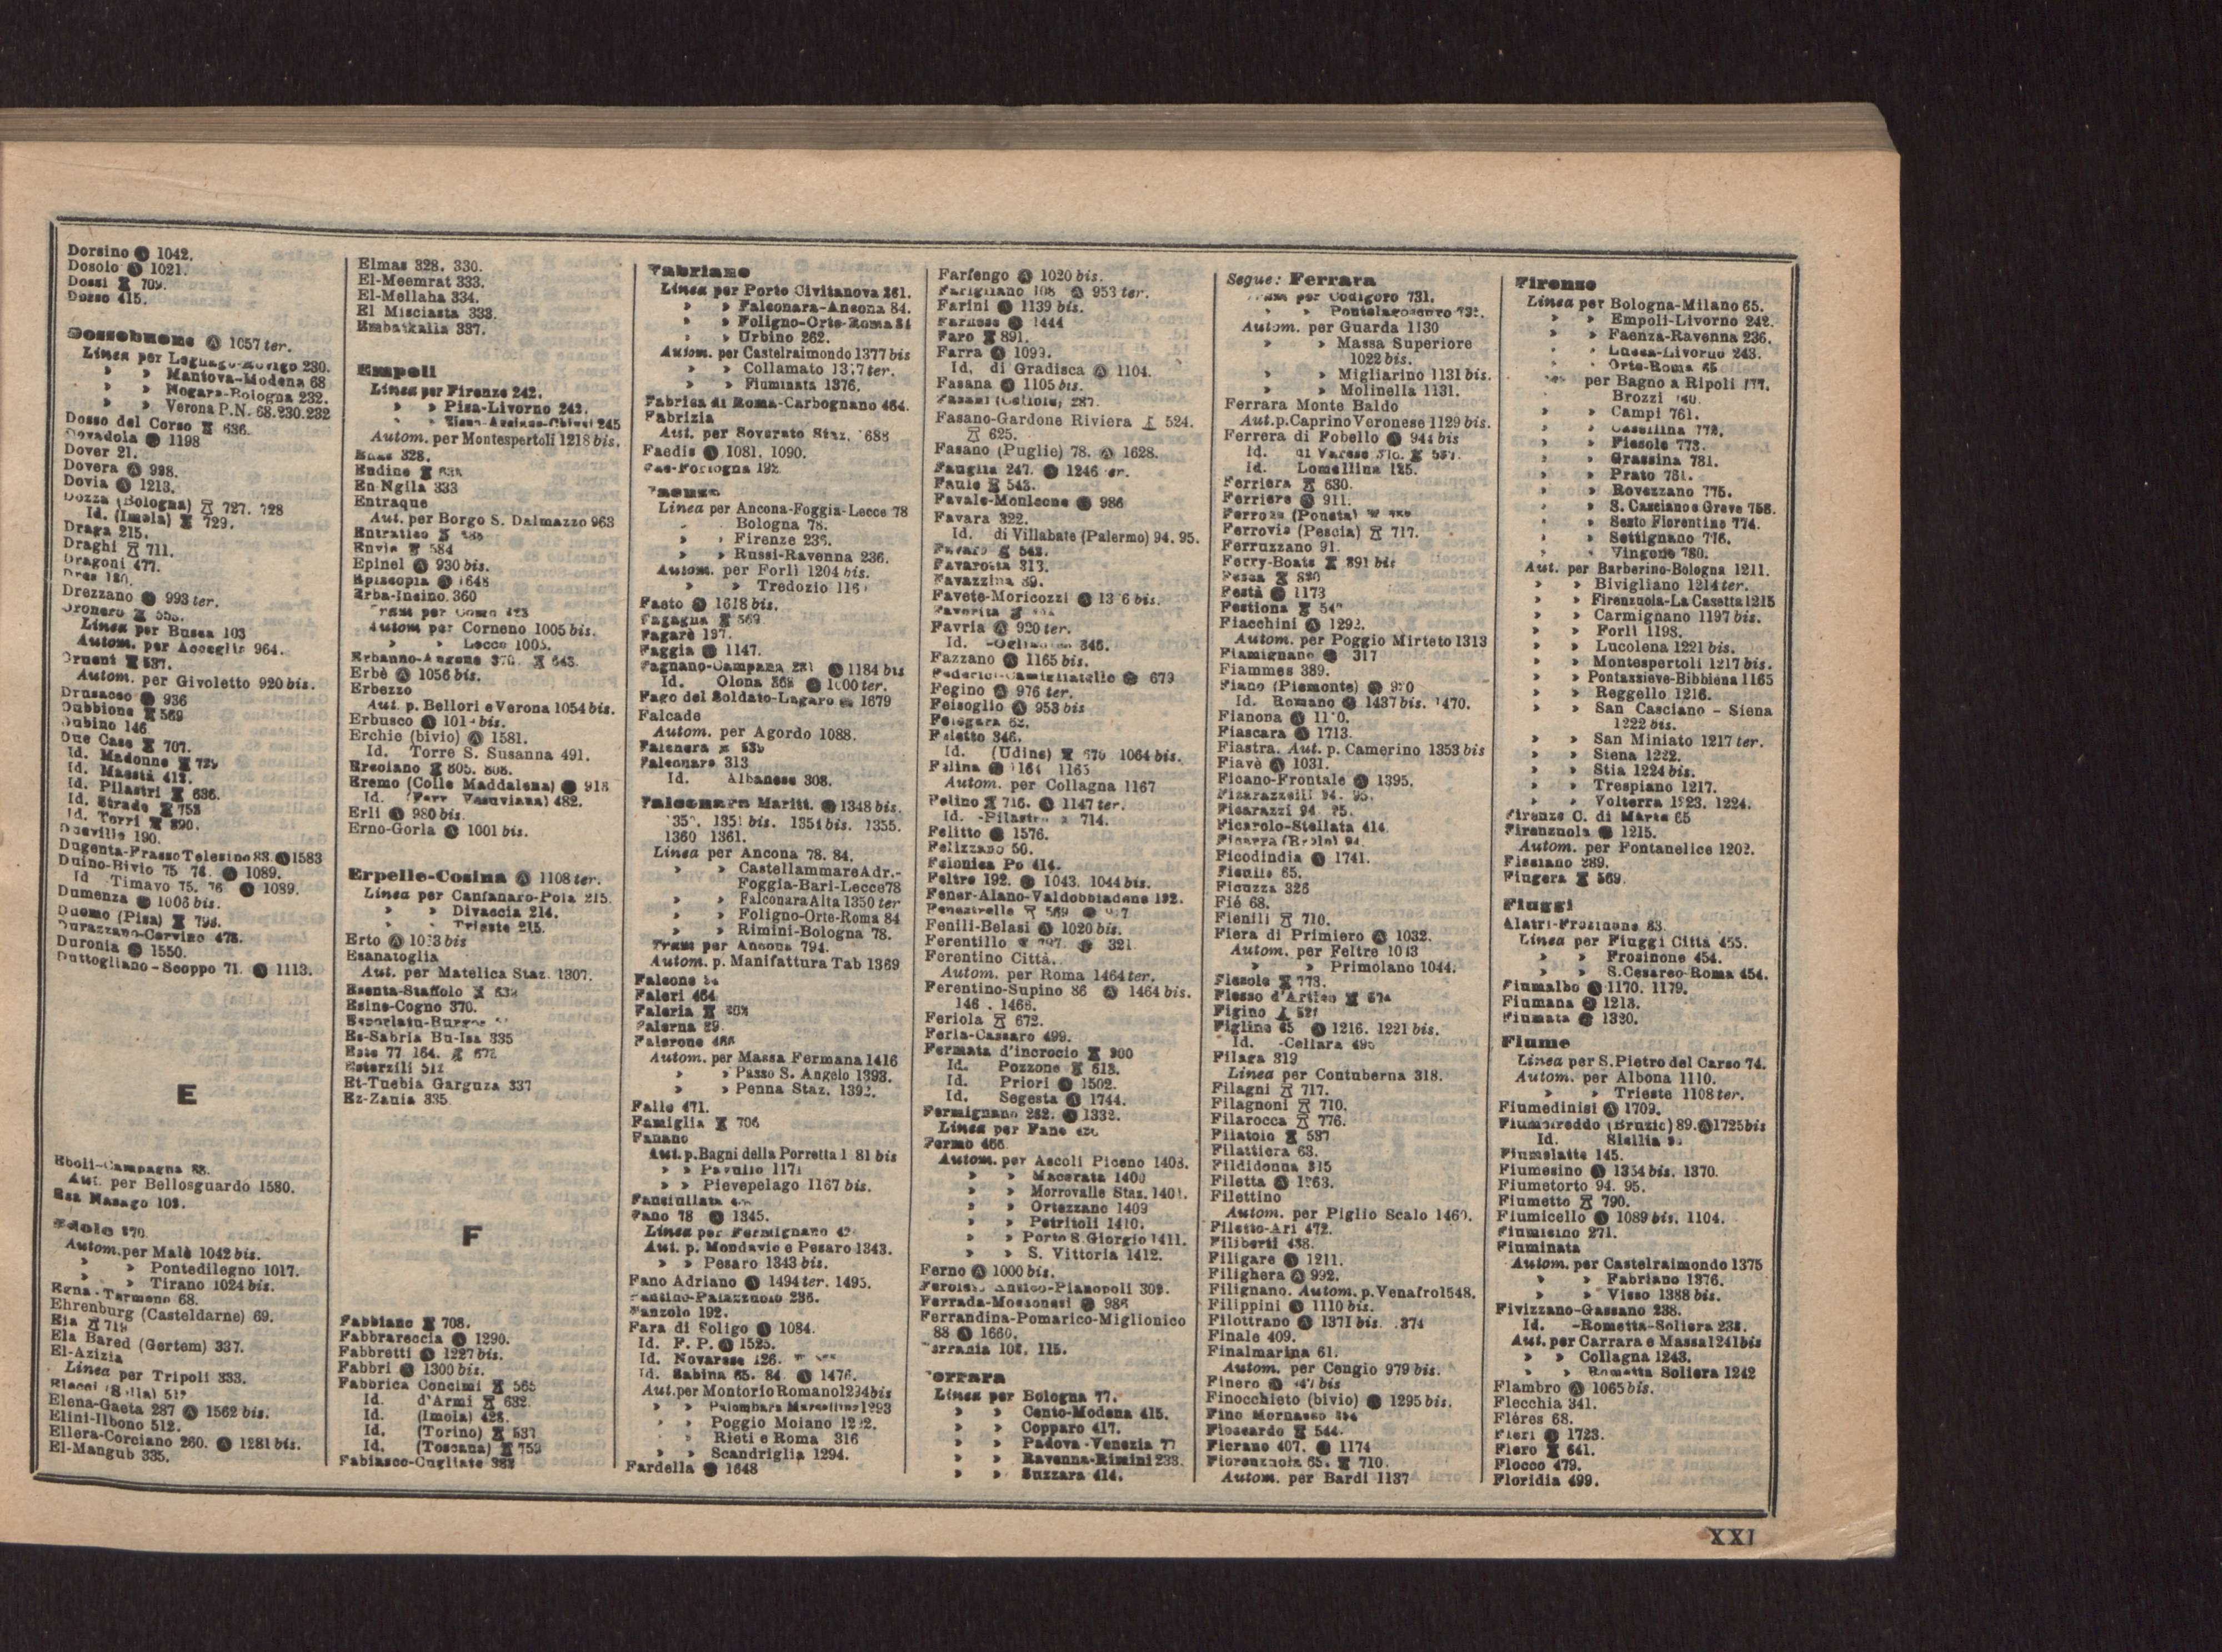 Dorsino Ⓐ 1042.
Dosolo Ⓐ 1021.
Dossi 709.
Dosso 415.
Dossobuono Ⓐ 1057 ter.
Linea per Legnago-Rovigo 230.
» » Mantova-Modena 68
» » Nogara-Bologna 232.
» » Verona P.N. 68.230.232
Dosso del Corso 636.
Dovadola Ⓐ 1198
Dover 21.
Dovera Ⓐ 998.
Dovia Ⓐ 1213.
Dozza (Bologna) 727. 728
Id. (Imola) 729.
Draga 215.
Draghi 711.
Dragoni 477.
Drezzano Ⓐ 993 ter.
Dronero
Linea per Busca 103
Autom. per Acceglio 964.
Druent 537.
Autom. per Givoletto 920 bis.
Drusacco Ⓐ 936
Dubbione 569
Dubino 146
Due Case 707.
Id. Madonne
Id. Maestà
Id. Pilastri 636.
Id. Strade 753
Id. Torri 890.
Dueville 190.
Dugenta-Frasso Telesino 83. Ⓐ 1583
Duino-Bivio 75 76. Ⓐ 1089.
Id. Timavo 75. 76 Ⓐ 1089.
Dumenza Ⓐ 1006 bis.
Duomo (Pisa) 796.
Durazzano-Cervino 478.
Duronia Ⓐ 1550.
Duttogliano-Scoppo 71. Ⓐ 1113.
E
Eboli-Campagna 88.
Aut. per Bellosguardo 1580.
Edolo 370.
Autom. per Malè 1042 bis.
» » Pontedilegno 1017.
» » Tirano 1024 bis.
Egna-Termeno 68.
Ehrenburg (Casteldarne) 69.
Eia 719
Ela Bared (Gertem) 337.
El-Azizia
Linea per Tripoli 333.
Elena-Gaeta 287 Ⓐ 1562 bis.
Elini-Ilbono 512.
Ellera-Corciano 260. Ⓐ 1281 bis.
El-Mangub 335.
Elmas 328. 330.
El-Meemrat 333.
El-Mellaha 334.
El Misciasta 333.
Embatkalla 337.
Empoli
Linea per Firenze 242.
» » Pisa-Livorno 242.
Autom. per Montespertoli 1218 bis.
Enas 328.
Endine
En Ngila 333
Entraque
Aut. per Borgo S. Dalmazzo 963
Entratico
Envie 584
Epinel Ⓐ 930 bis.
Episcopia Ⓐ 1648
Erba-Incino 360
Tram per Como
Autom per Corneno 1005 bis.
» » Lecco 1005.
Erbanno-Angone 370. 643.
Erbè Ⓐ 1056 bis.
Erbezzo
Aut. p. Bellori e Verona 1054 bis.
Erbusco Ⓐ
Erchie (bivio) Ⓐ 1581.
Id. Torre S. Susanna 491.
Ercolano 805. 808.
Eremo (Colle Maddalena) Ⓐ 918
Id. (Ferr. Vesuviana) 482.
Erli Ⓐ 980 bis.
Erno-Gorla Ⓐ 1001 bis.
Erpelle-Cosina Ⓐ 1108 ter.
Linea per Canfanaro-Pola 215.
» » Divaccia 214.
» » Trieste 215.
Erto Ⓐ
Esanatoglia
Aut. per Matelica Staz. 1307.
Esenta-Staffolo
Esine-Cogno 370.
Es-Sabria Bu-Isa 335
Este 77 164. 672
Esterzili 512
Et-Tuebia Garguza 337
Ez-Zauia 335
F
Fabbiano 708.
Fabbrareccia Ⓐ 1290.
Fabbretti Ⓐ 1227 bis.
Fabbri Ⓐ 1300 bis.
Fabbrica Concimi 565
Id. d'Armi 632.
Id. (Imola) 428.
Id. (Torino) 537
Id. (Toscana) 752
Fabiasco-Cugliate 382
Fabriano
Linea per Porto Civitanova 261.
» » Falconara-Ancona 84.
» » Foligno-Orte-Roma 84
» » Urbino 262.
Autom. per Castelraimondo 1377 bis
» » Collamato
» » Fiuminata 1376.
Fabrica di Roma-Carbognano 464.
Fabrizia
Aut. per Soverato Staz. 688
Faedis Ⓐ 1081. 1090.
Faenza
Linea per Ancona-Foggia-Lecce 78
Bologna 78.
» » Firenze 236.
» » Russi-Ravenna 236.
Autom. per Forlì 1204 bis.
» » Tredozio
Faeto Ⓐ 1618 bis.
Fagagna 569
Fagarè 197.
Faggia Ⓐ 1147.
Fagnano-Campana 281 Ⓐ 1184 bis
Id. Olona 368 Ⓐ 1000 ter.
Fago del Soldato-Lagaro 1679
Falcade
Autom. per Agordo 1088.
Falconara 313
Id. Albanese 308.
Falconara Maritt. Ⓐ 1348 bis.
1351 bis. 1354 bis. 1355.
1360 1361.
Linea per Ancona 78. 84.
» » Castellammare Adr.-
Foggia-Bari-Lecce 78
» » Falconara Alta 1350 ter
» » Foligno-Orte-Roma 84
» » Rimini-Bologna 78.
Tram per Ancona 794.
Autom. p. Manifattura Tab 1369
Falcone
Faleri 464
Faleria
Falerna 89
Falerone 466
Autom. per Massa Fermana 1416
» » Passo S. Angelo 1393.
» » Penna Staz. 1392.
Fallo 471.
Famiglia 706
Fanano
Aut. p. Bagni della Porretta
» » Pavullo
» » Pievepelago 1167 bis.
Fano 78 Ⓐ 1345.
Linea per Fermignano
Aut. p. Mondavio e Pesaro 1343.
» » Pesaro 1343 bis.
Fano Adriano Ⓐ 1494 ter. 1495.
Fantino-Palazzuolo 236.
Fanzolo 192.
Fara di Soligo Ⓐ 1084.
Id. F. P. Ⓐ 1525.
Id. Novarese 126.
Id. Sabina 65. 84. Ⓐ 1476.
Aut. per Montorio Romano 1294 bis
» » Palombara Marcellina 1293
» » Poggio Moiano
» Rieti e Roma 316
» » Scandriglia 1294.
Fardella Ⓐ 1648
Farfengo Ⓐ 1020 bis.
Farigliano 108 Ⓐ 953 ter.
Farini Ⓐ 1139 bis.
Farnese Ⓐ 1444
Faro 891.
Farra Ⓐ 1099.
Id. di Gradisca Ⓐ 1104.
Fasana Ⓐ 1105 bis.
Fasano-Gardone Riviera 524.
625.
Fasano (Puglie) 78. Ⓐ 1628.
Fauglia 247. Ⓐ 1246 ter.
Faule 543.
Favale-Monleone Ⓐ 986
Favara 322.
Id. di Villabate (Palermo) 94. 95.
Favarotta 313.
Favazzina 89.
Favete-Moricozzi Ⓐ
Favorita
Favria Ⓐ 920 ter.
Id. -Oglianico 346.
Fazzano Ⓐ 1165 bis.
Federici-Camigliatello 679
Fegino Ⓐ 976 ter.
Feisoglio Ⓐ 953 bis
Feletto 346.
Id. (Udine) 676 1064 bis.
Felina Ⓐ 1164 1165
Autom. per Collagna 1167
Felino 716. Ⓐ 1147 ter.
Id. -Pilastro 714.
Felitto Ⓐ 1576.
Felizzano 50.
Felonica Po 414.
Feltre 192. Ⓐ 1043. 1044 bis.
Fener-Alano-Valdobbiadene 192.
Fenestrelle 569
Fenili-Belasi Ⓐ 1020 bis.
Ferentillo 797. 321
Ferentino Città.
Autom. per Roma 1464 ter.
Ferentino-Supino 86 Ⓐ 1464 bis.
1466.
Feriola 672.
Ferla-Cassaro 499.
Fermata d'incrocio 900
Id. Pozzone 613.
Id. Priori Ⓐ 1502.
Id. Segesta Ⓐ 1744.
Fermignano 262. Ⓐ 1332.
Linea per Fano
Fermo 466
Autom. per Ascoli Piceno 1408.
» » Macerata 1400
» » Morrovalle Staz. 1401.
» » Ortezzano 1409
» » Petritoli 1410.
» » Porto S. Giorgio 1411.
» » S. Vittoria 1412.
Ferno Ⓐ 1000 bis.
Feroleto Antico-Pianopoli 309.
Ferrada-Moconesi Ⓐ 986
Ferrandina-Pomarico-Miglionico
88 Ⓐ 1660.
Ferrania 108. 115.
Ferrara
Linea per Bologna 77.
» » Cento-Modena 415.
» » Copparo 417.
» » Padova-Venezia 77
» » Ravenna-Rimini 233.
» » Suzzara 414.
Segue: Ferrara
Tram per Codigoro 731.
» » Pontelagoscuro 732.
Autom. per Guarda 1130
» » Massa Superiore
1022 bis.
» » Migliarino 1131 bis.
» » Molinella 1131.
Ferrara Monte Baldo
Aut. p. Caprino Veronese 1129 bis.
Ferrera di Fobello Ⓐ 944 bis
Id. di Varese
Id. Lomellina 125.
Ferriera 630.
Ferriere Ⓐ 911.
Ferrovia (Pescia) 717.
Ferruzzano 91.
Ferry-Boats 891 bis
Fesca 820
Festà Ⓐ 1173
Festiona
Fiacchini Ⓐ 1292.
Autom. per Poggio Mirteto 1313
Fiamignano Ⓐ 317
Fiammes 389.
Fiano (Piemonte) Ⓐ
Id. Romano Ⓐ 1437 bis. 1470.
Fianona Ⓐ
Fiascara Ⓐ 1713.
Fiastra. Aut. p. Camerino 1353 bis
Fiavè Ⓐ 1031.
Ficano-Frontale Ⓐ 1395.
Ficarazzelli 94. 95.
Ficarazzi 94 95.
Ficarolo-Stellata 414.
Ficodindia Ⓐ 1741.
Ficulle 65.
Ficuzza 326
Fié 68.
Fienili 710.
Fiera di Primiero Ⓐ 1032.
Autom. per Feltre 1043
» » Primolano 1044.
Fiesole 773.
Fiesso d'Artico 674
Figino
Figline 65 Ⓐ 1216. 1221 bis.
Id. -Cellara 495
Filaga 319
Linea per Contuberna 318.
Filagni 717.
Filagnoni 710.
Filarocca 776.
Filatoio 537
Filattiera 63.
Fildidonna 315
Filetta Ⓐ 1263.
Filettino
Autom. per Piglio Scalo 1460.
Filetto-Ari 472.
Filiberti 438.
Filigare Ⓐ 1211.
Filighera Ⓐ 992.
Filignano. Autom. p. Venafro 1548.
Filippini Ⓐ 1110 bis.
Filottrano Ⓐ 1371 bis. 1374
Finale 409.
Finalmarina 61.
Autom. per Cengio 979 bis.
Finero Ⓐ
Finocchieto (bivio) Ⓐ 1295 bis.
Fino Mornasco
Fioccardo 544.
Fiorano 407. Ⓐ 1174
Fiorenzuola 65. 710.
Autom. per Bardi 1137
Firenze
Linea per Bologna-Milano 65.
» » Empoli-Livorno 242.
» » Faenza-Ravenna 236.
» » Lucca-Livorno 243.
» » Orte-Roma 65
Tram per Bagno a Ripoli 777.
Brozzi
» » Campi 761.
» » Casellina 772.
» » Fiesole 773.
» » Grassina 781.
» » Prato 761.
» » Rovezzano 775.
» » S. Casciano e Greve 756.
» » Sesto Fiorentino 774.
» » Settignano 776.
» » Vingone 780.
Aut. per Barberino-Bologna 1211.
» » Bivigliano 1214 ter.
» » Firenzuola-La Casetta 1215
» » Carmignano 1197 bis.
» » Forlì 1198.
» » Lucolena 1221 bis.
» » Montespertoli 1217 bis.
» » Pontassieve-Bibbiena 1165
» » Reggello 1216.
» » San Casciano - Siena
1222 bis.
» » San Miniato 1217 ter.
» » Siena 1222.
» » Stia 1224 bis.
» » Trespiano 1217.
» » Volterra 1223. 1224.
Firenze C. di Marte 65
Firenzuola Ⓐ 1215.
Autom. per Fontanelice 1202.
Fisciano 289.
Fiugera 569.
Fiuggi
Alatri-Frosinone 83.
Linea per Fiuggi Città 455.
» » Frosinone 454.
» » S. Cesareo-Roma 454.
Fiumalbo Ⓐ 1170. 1179.
Fiumana Ⓐ 1213.
Fiumata Ⓐ 1320.
Fiume
Linea per S. Pietro del Carso 74.
Autom. per Albona 1110.
» » Trieste 1108 ter.
Fiumedinisi Ⓐ 1709.
Fiumefreddo (Bruzio) 89. Ⓐ 1725 bis
Id. Sicilia
Fiumelatte 145.
Fiumesino Ⓐ 1354 bis. 1370.
Fiumetorto 94. 95.
Fiumetto 790.
Fiumicello Ⓐ 1089 bis. 1104.
Fiumicino 271.
Fiuminata
Autom. per Castelraimondo 1375
» » Fabriano 1376.
» » Visso 1388 bis.
Fivizzano-Gassano 238.
Id. -Rometta-Soliera 238.
Aut. per Carrara e Massa 1241 bis
» » Collagna 1243.
» » Rometta Soliera 1242
Flambro Ⓐ 1065 bis.
Flecchia 341.
Fléres 68.
Fleri Ⓐ 1723.
Flero 641.
Flocco 479.
Floridia 499.
XXI